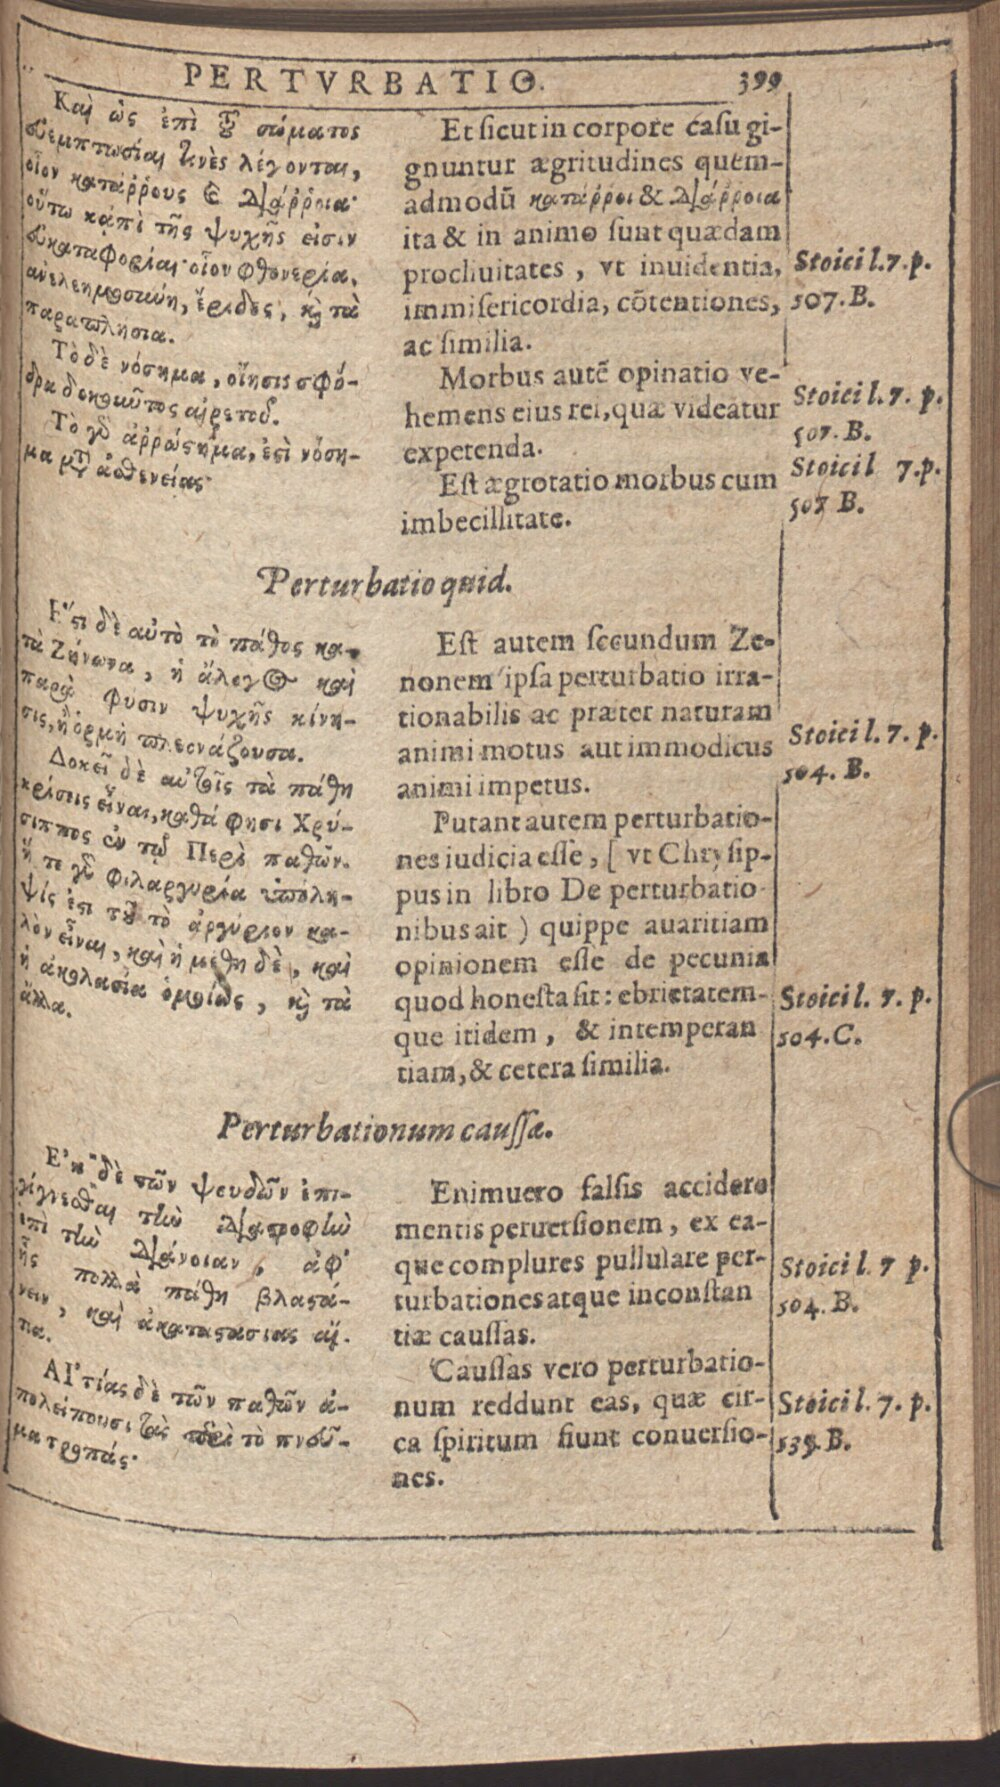 PERTVRBATIO.
399
Καὶ ὡς ἐπὶ τοῦ σώματος
εὐεμπτωσίαι τινὲς λέγονται,
οἷον κατάῤῥους καὶ διάῤῥοια·
οὕτω κἀπὶ τῆς ψυχῆς εἰσιν
εὐκαταφορίαι· οἷον φθονερία,
ἀνελεημοσύνη, ἔριδες, καὶ τὰ
παραπλήσια.
Τὸ δὲ νόσημα, οἴησις σφό-
δρα δοκοῦντος αἱρετοῦ.
Τὸ γὰρ ἀῤῥώστημα, ἐστὶ νόση-
μα μετ' ἀσθενείας·
Et sicut in corpore casu gi-
gnuntur ægritudines quem-
admodū κατάῤῥοι & διάῤῥοια
ita & in animo sunt quædam
procliuitates, vt inuidentia,
immisericordia, cōtentiones,
ac similia.
Morbus autē opinatio ve-
hemens eius rei, quæ videatur
expetenda.
Est ægrotatio morbus cum
imbecillitate.
Stoici l. 7. p.
507. B.
Stoici l. 7. p.
507. B.
Stoici l 7. p.
507 B.
Perturbatio quid.
Ἔστι δὲ αὐτὸ τὸ πάθος κα-
τὰ Ζήνωνα, ἡ ἄλογος καὶ
παρὰ φύσιν ψυχῆς κίνη-
σις, ἢ ὁρμὴ πλεονάζουσα.
Δοκεῖ δὲ αὐτοῖς τὰ πάθη
κρίσεις εἶναι, καθά φησι Χρύ-
σιππος ἐν τῷ Περὶ παθῶν.
ἥ τε γὰρ φιλαργυρία ὑπόλη-
ψίς ἐστι τοῦ τὸ ἀργύριον κα-
λὸν εἶναι, καὶ ἡ μέθη δὲ, καὶ
ἡ ἀκολασία ὁμοίως, καὶ τὰ
ἄλλα.
Est autem secundum Ze-
nonem ipsa perturbatio irra-
tionabilis ac præter naturam
animi motus aut immodicus
animi impetus.
Putant autem perturbatio-
nes iudicia esse, [ vt Chrysip-
pus in libro De perturbatio
nibus ait ) quippe auaritiam
opinionem esse de pecunia
quod honesta sit: ebrietatem-
que itidem, & intemperan
tiam, & cetera similia.
Stoici l. 7. p.
504. B.
Stoici l. 7. p.
504. C.
Perturbationum caussæ.
Ἐκ δὲ τῶν ψευδῶν ἐπι-
γίγνεσθαι τὴν διαστροφὴν
ἐπὶ τὴν διάνοιαν, ἀφ'
ἧς πολλὰ πάθη βλαστά-
νειν, καὶ ἀκαταστασίας αἴ-
τια.
ΑἸτίας δὲ τῶν παθῶν ἀ-
πολείπουσι τὰς περὶ τὸ πνεῦ-
μα τροπάς·
Enimuero falsis accidere
mentis peruersionem, ex ea-
que complures pullulare per-
turbationes atque inconstan
tiæ caussas.
Caussas vero perturbatio-
num reddunt eas, quæ cir-
ca spiritum fiunt conuersio-
nes.
Stoici l. 7 p.
504. B.
Stoici l. 7. p.
539. B.